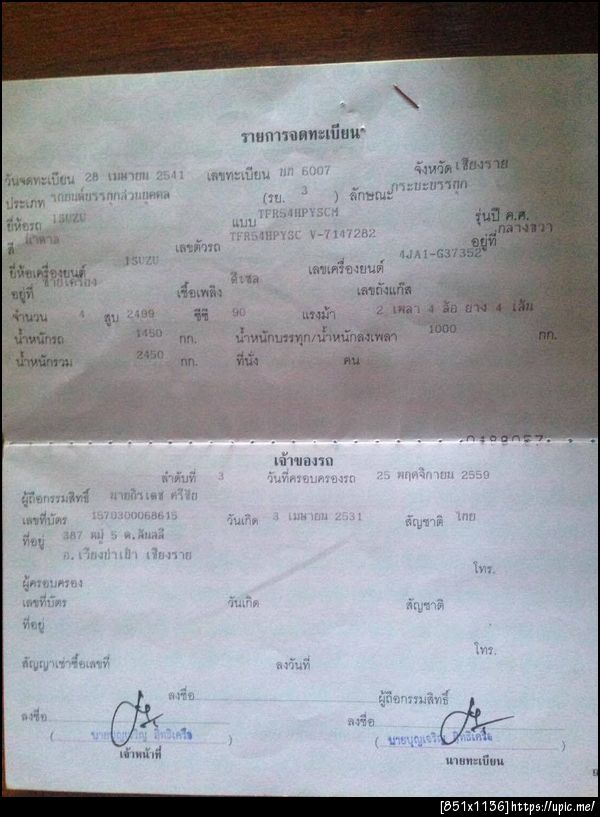 รายการจดทะเบียน
วันจดทะเบียน 28 เมษายน 2541 เลขทะเบียน บก 6007 จังหวัด เชียงราย
ประเภท รถยนต์บรรทุกส่วนบุคคล (รย. 3 ) ลักษณะ กระบะบรรทุก
ยี่ห้อรถ ISUZU แบบ TFR54HPYSCM รุ่นปี ค.ศ.
สี เลขตัวรถ TFR54HPYSC V-7147282 อยู่ที่ กลางขวา
ยี่ห้อเครื่องยนต์ ISUZU เลขเครื่องยนต์ 4JA1-G37352
อยู่ที่ ซ้ายเครื่อง เชื้อเพลิง ดีเซล เลขถังแก๊ส
จำนวน 4 สูบ 2499 ซีซี 90 แรงม้า 2 เพลา 4 ล้อ ยาง 4 เส้น
น้ำหนักรถ 1450 กก. น้ำหนักบรรทุก/น้ำหนักลงเพลา 1000 กก.
น้ำหนักรวม 2450 กก. ที่นั่ง คน
เจ้าของรถ
ลำดับที่ 3 วันที่ครอบครองรถ 25 พฤศจิกายน 2559
ผู้ถือกรรมสิทธิ์ ศรีชัย
เลขที่บัตร 1570300068615 วันเกิด 3 เมษายน 2531 สัญชาติ ไทย
ที่อยู่ 387 หมู่ 5 ต.สันสลี
อ.เวียงป่าเป้า เชียงราย
โทร.
ผู้ครอบครอง
เลขที่บัตร วันเกิด สัญชาติ
ที่อยู่
โทร.
สัญญาเช่าซื้อเลขที่ ลงวันที่
ลงชื่อ ผู้ถือกรรมสิทธิ์
ลงชื่อ ลงชื่อ
( ) ( )
เจ้าหน้าที่ นายทะเบียน
[851x1136]https://upic.me/